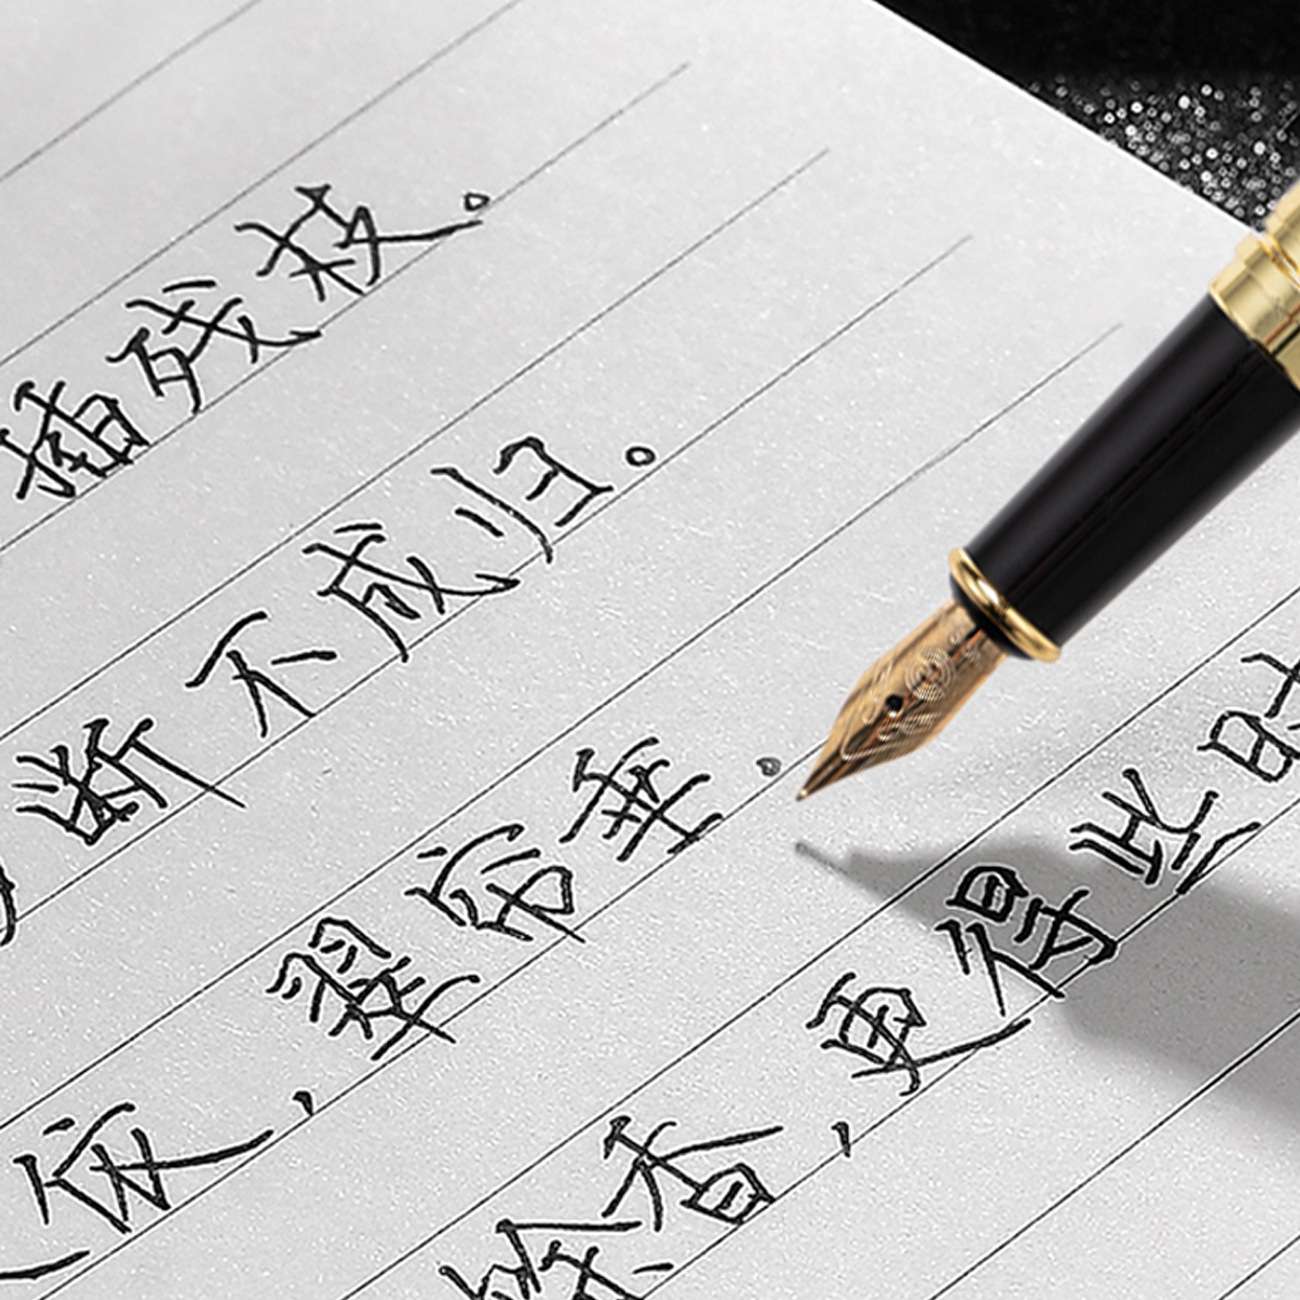 插残枝。
断不成归。
依，翠帘垂。
香，更得些时